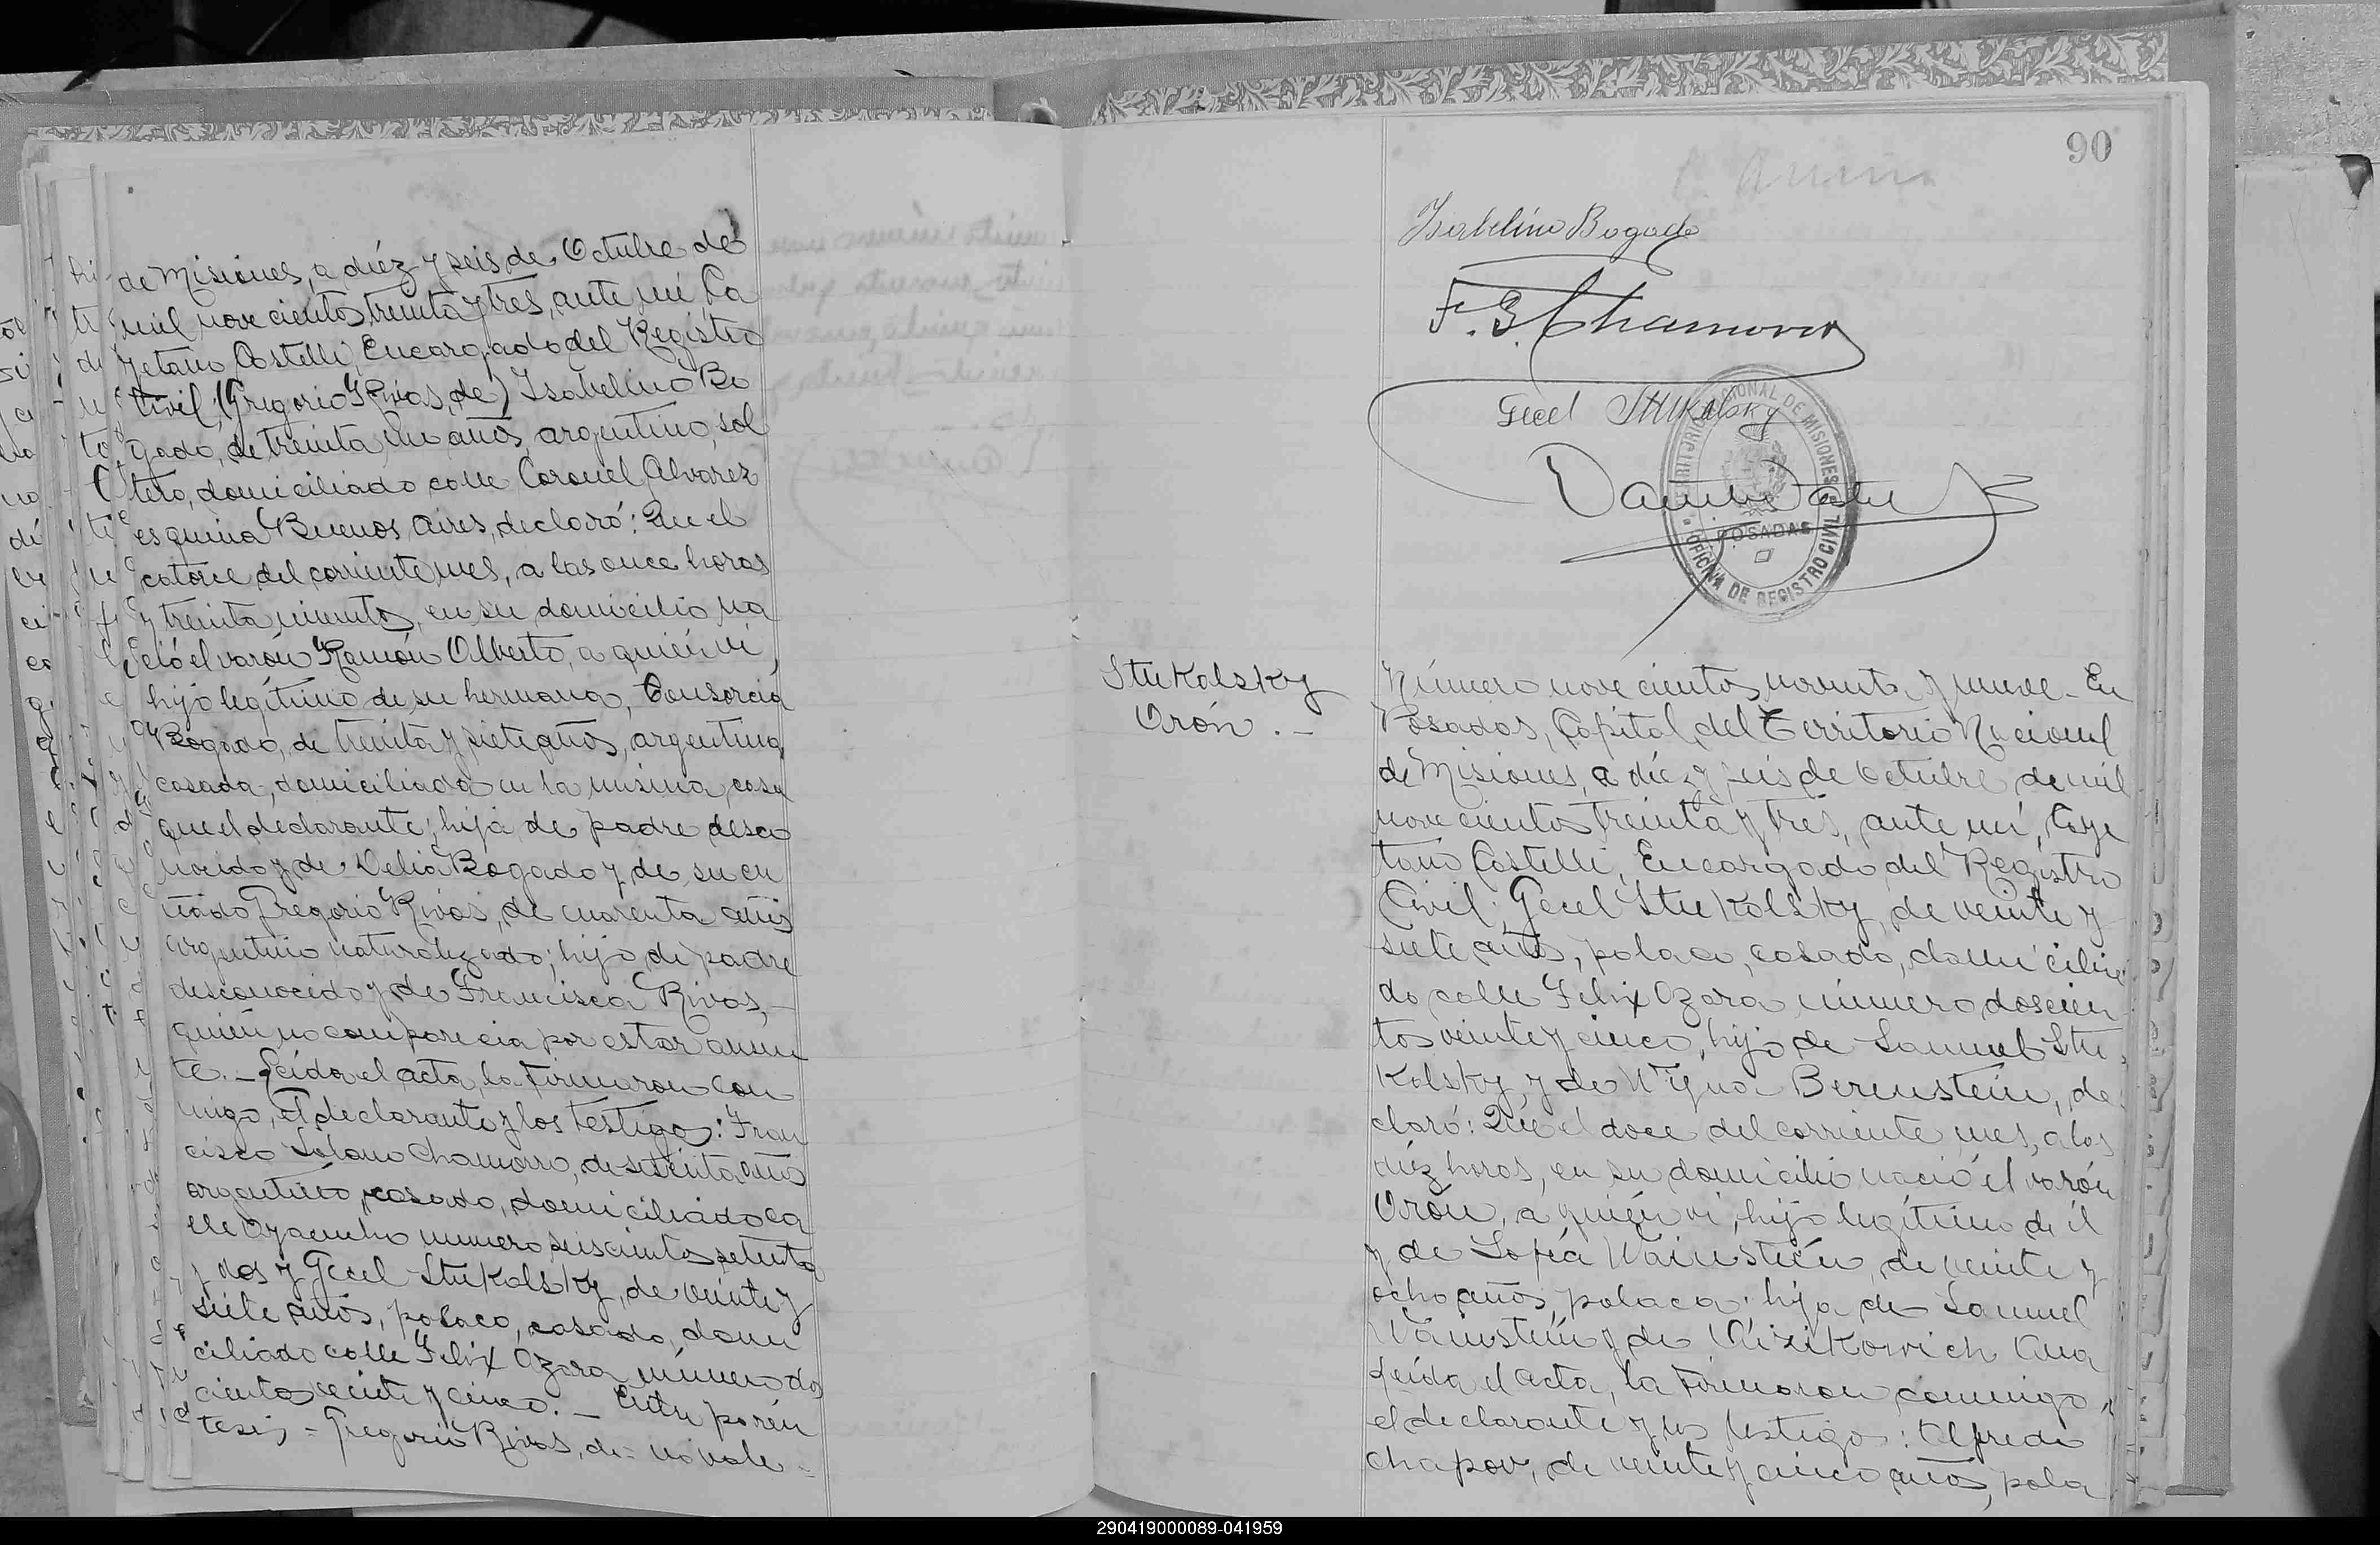 de Misiones, a diéz y seis de Octubre de
mil nove cientos treinta y tres, ante mí Ca
yetano Castelli, Encargado del Registro
Civil, (Gregorio Rivas, de) Isabelino Bo
gado, de treinta un años, argentino, sol
tero, domiciliado calle Coronel Alvarez
esquina Buenos Aires, declaró: Que el
catorce del corriente mes, a las once horas
y treinta minutos, en su domicilio na
ció el varón Ramón Alberto, a quién ví,
hijo legítimo de su hermana, Consorcia
Bogado, de treinta y siete años, argentina,
casada, domiciliada en la misma casa
que el declarante; hija de padre desco
nocido y de Delia Bogado y de su cu
ñado Gregorio Rivas, de cuarenta años
argentino naturalizado; hijo de padre
desconocido y de Francisca Rivas,-
quién no comparecia por estar ausen
te.- Leída el acta, la firmaron con
migo, el declarante y los testigos: Fran
cisco Solano Chamorro, de setenta años
argentino, casado, domiciliado ca
lle Ayacucho numero seiscientos setenta
y dos y Gecel Stukolsky, de veinte y
siete años, polaco, casado, domi
ciliado calle Felix Azara número dos
cientos veinte y cinco.- Entre parén
tesis - Gregorio Rivas, de = no vale -
90
Isabelino Bogado
F. S. Chamorro
Gecel Stukalsky
TERRITORIO NACIONAL DE MISIONES
POSADAS
OFICINA DE REGISTRO CIVIL
Stukolsky
Orón .-
Número nove cientos noventa y nueve - En
Posadas, Capital del Territorio Nacional
de Misiones, a diéz y seis de Octubre de mil
nove cientos treinta y tres, ante mí, Caye
tano Castelli, Encargado del Registro
Civil: Gecel Stukolsky, de veinte y
siete años, polaco, casado, domicilia
do calle Felix Azara número doscien
tos veinte y cinco, hijo de Samuel Stu
kolsky y de Berenstein, de
claró: Que el doce del corriente mes, a las
diéz horas, en su domicilio nació el varón
Orón, a quién ví, hijo legítimo de él
y de Sofía Wainstein, de veinte y
ocho años, polaca; hija de Samuel
Wainstein y de Ana
Leída el acta, la firmaron conmigo,
el declarante y los testigos: Alfredo
Chapov, de veinte y cinco años, pola
290419000089-041959